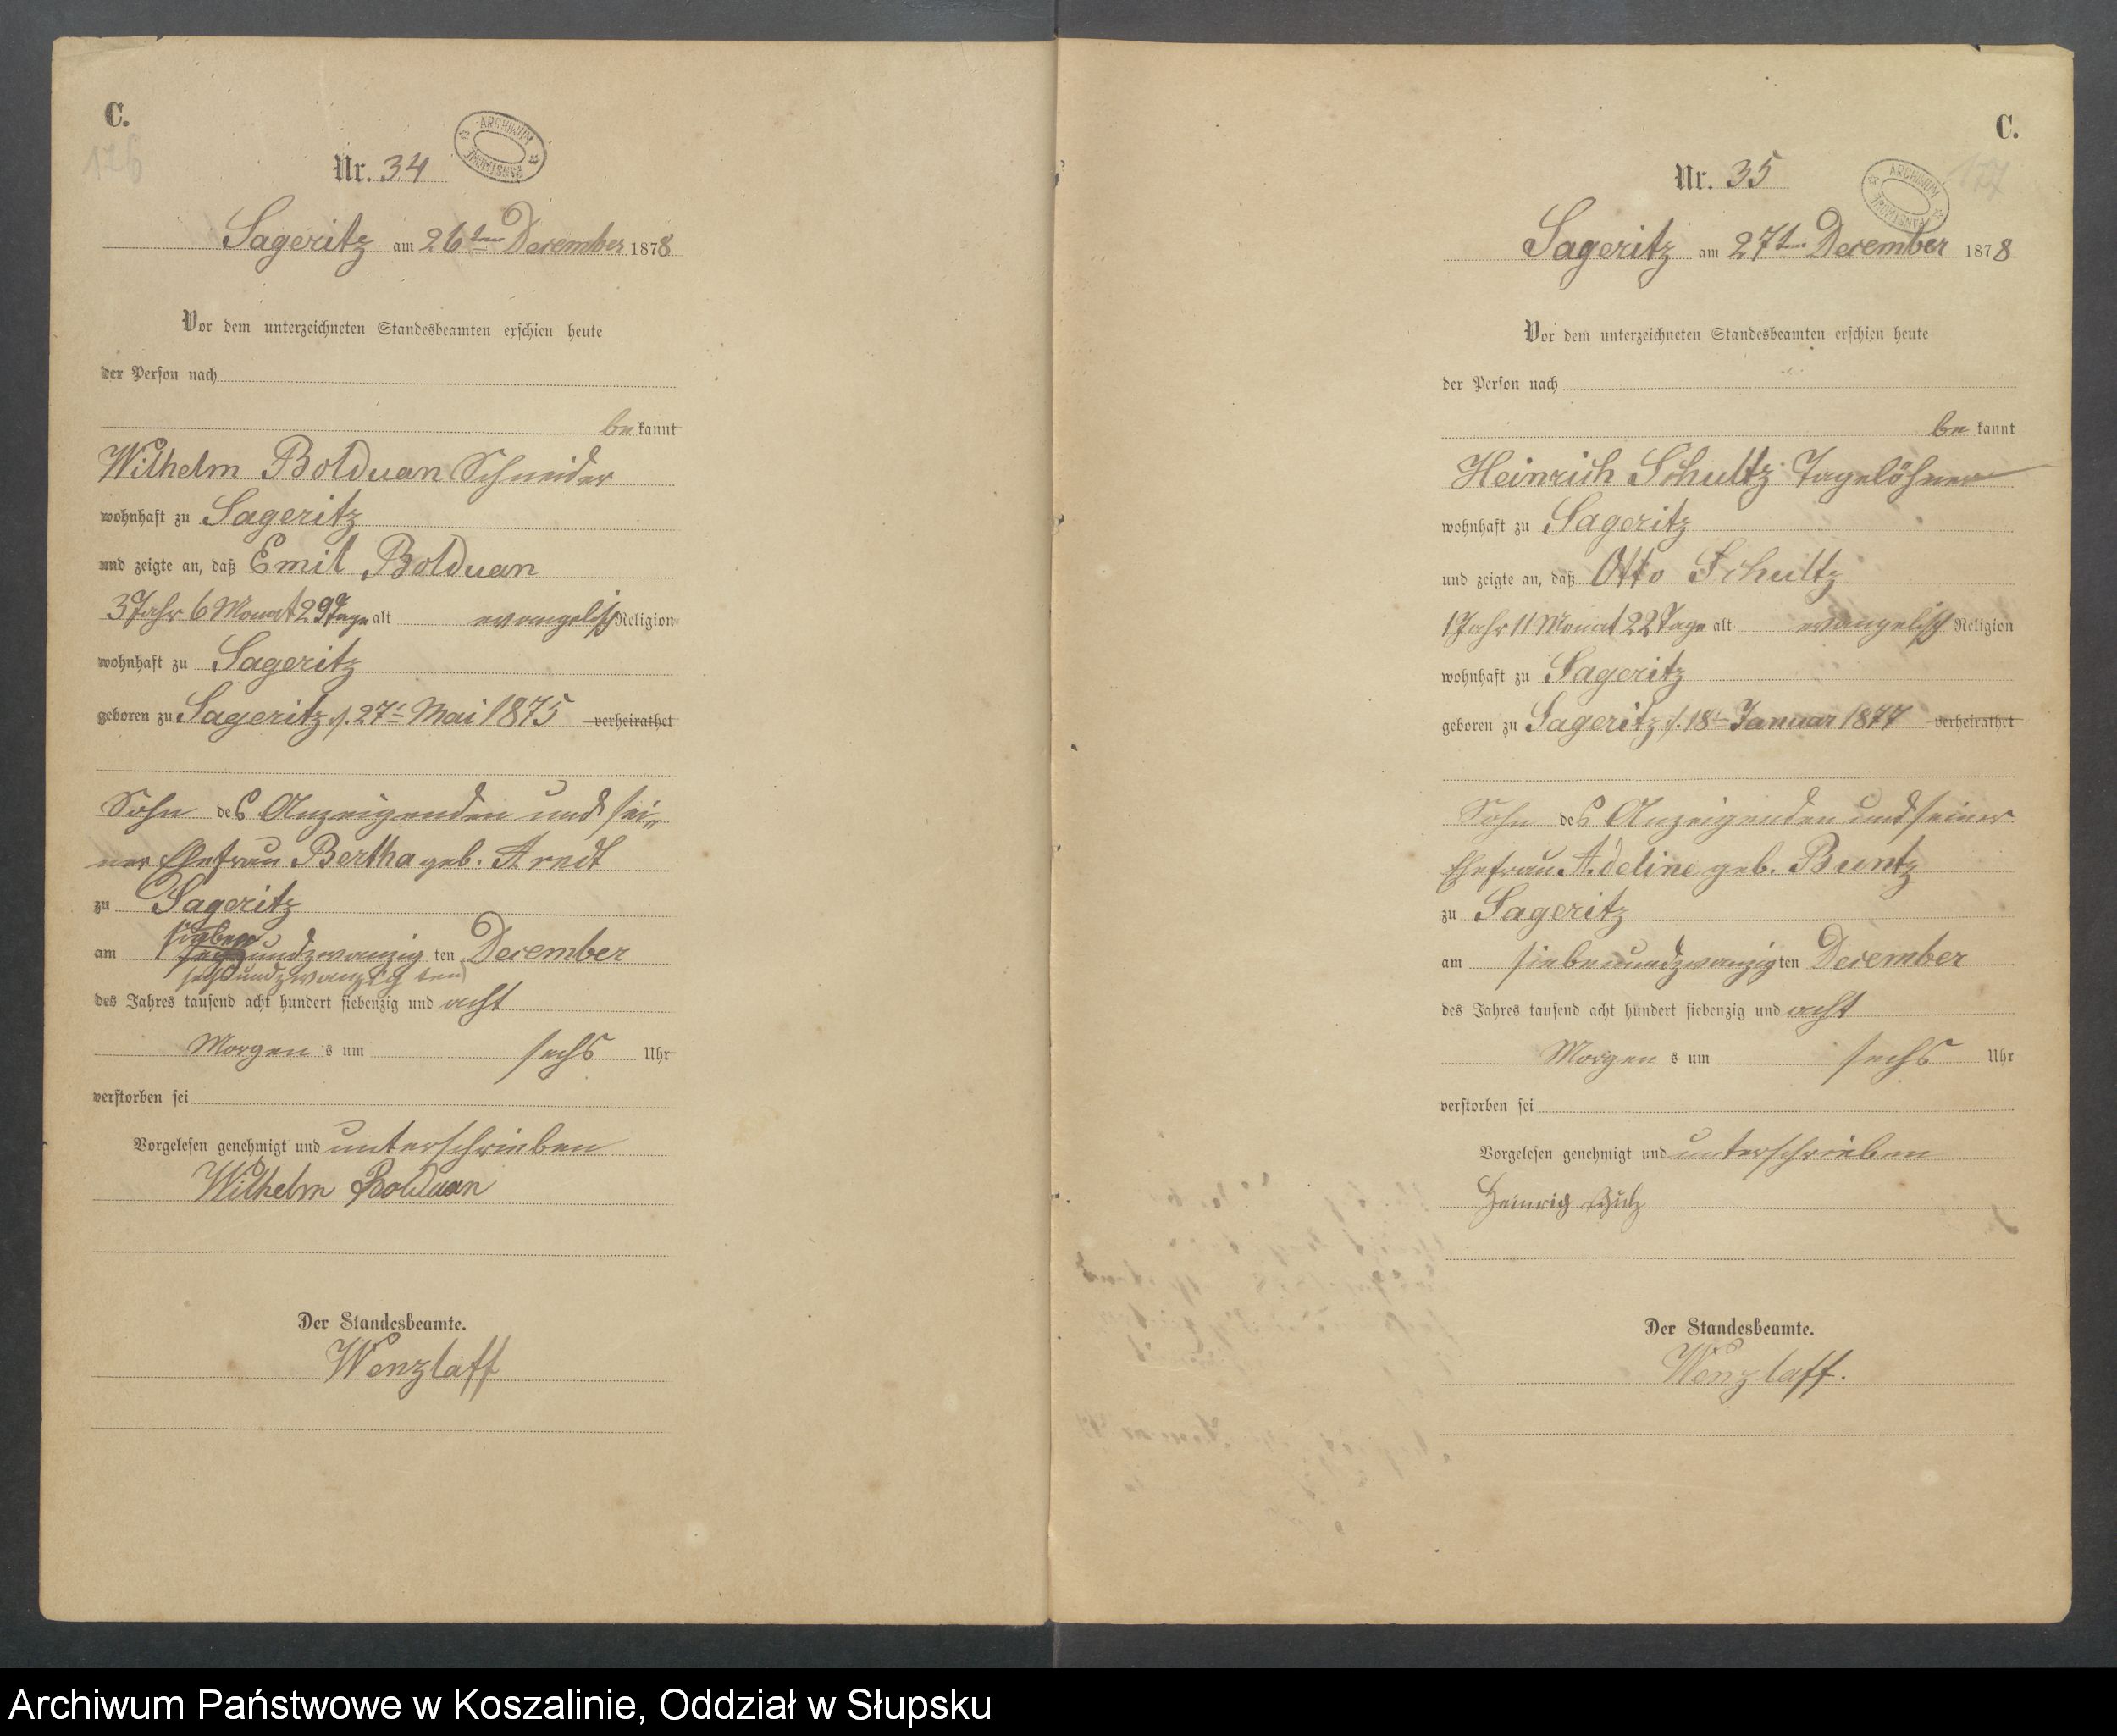 C.
176
Nr. 34
ARCHIWUM PAŃSTWOWE
Sageritz am 26ten December 1878
Vor dem unterzeichneten Standesbeamten erschien heute
der Person nach
be kannt
Wilhelm Bolduan Schneider
wohnhaft zu Sageritz
und zeigte an, daß Emil Bolduan
3 Jahr 6 Monat 29 Tage alt evangelisch Religion
wohnhaft zu Sageritz
geboren zu Sageritz d. 27t Mai 1875 verheirathet
Sohn des Anzeigenden und sei-
ner Ehefrau Bertha geb. Arndt
zu Sageritz
sieben
am sechsundzwanzig ten December
sechsundzwanzig ten
des Jahres tausend acht hundert siebenzig und acht
Morgen s um sechs Uhr
verstorben sei
Vorgelesen genehmigt und unterschrieben
Wilhelm Bolduan
Der Standesbeamte.
Wenzlaff
C.
177
Nr. 35
ARCHIWUM PAŃSTWOWE
Sageritz am 27ten December 1878
Vor dem unterzeichneten Standesbeamten erschien heute
der Person nach
be kannt
Heinrich Schultz Tagelöhner
wohnhaft zu Sageritz
und zeigte an, daß Otto Schultz
1 Jahr 11 Monat 22 Tage alt evangelisch Religion
wohnhaft zu Sageritz
geboren zu Sageritz d. 18t Januar 1877 verheirathet
Sohn des Anzeigenden und seiner
Ehefrau Adeline geb. Buntz
zu Sageritz
am siebenundzwanzig ten December
des Jahres tausend acht hundert siebenzig und acht
Morgen s um sechs Uhr
verstorben sei
Vorgelesen genehmigt und unterschrieben
Heinrich Schulz
Der Standesbeamte.
Wenzlaff.
Archiwum Państwowe w Koszalinie, Oddział w Słupsku